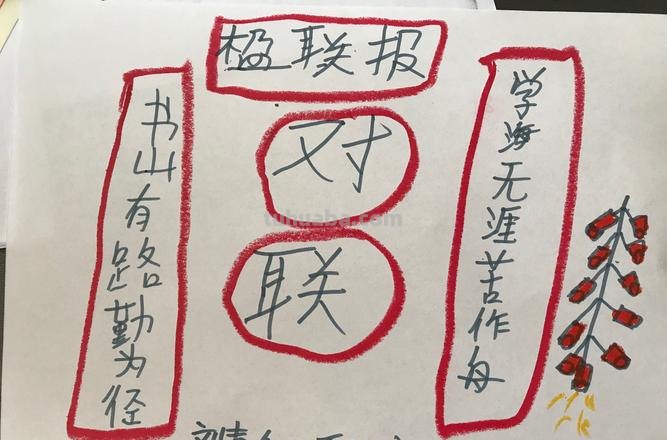 楹联报
对
联
书山有路勤为径
学海无涯苦作舟
tuhuaba.com